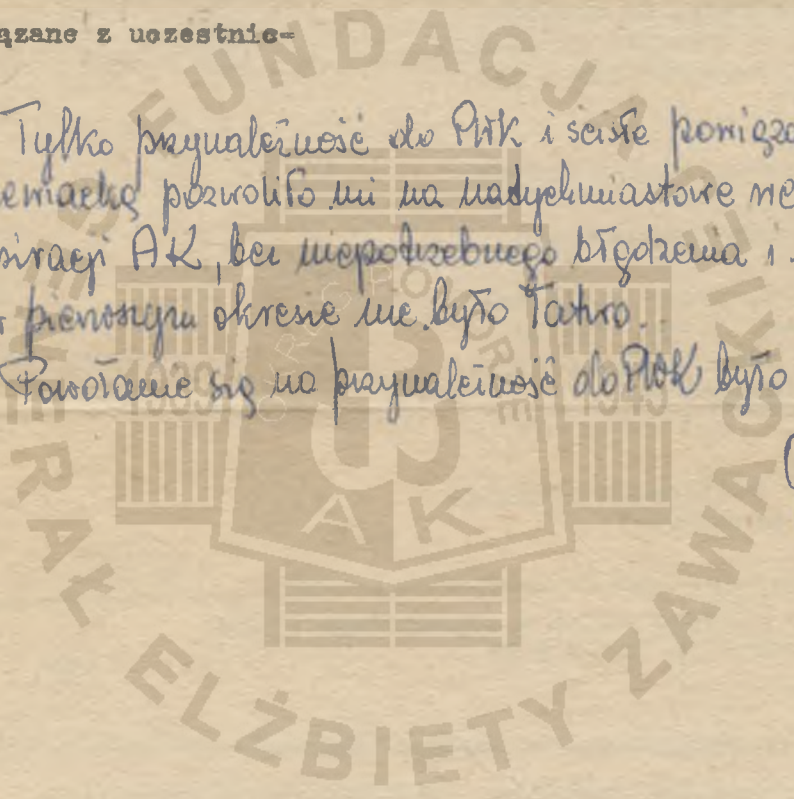 ązane z uczestnic-
Tylko przynależność do PWK i ścisłe powiąza
pozwoliło mi na natychmiastowe
AK, bez niepotrzebnego błądzenia i
pierwszym okresie nie było łatwo.
Powołanie się na przynależność do PWK było
FUNDACJA GENERAŁ ELŻBIETY ZAWACKIEJ
1939 1945
AK